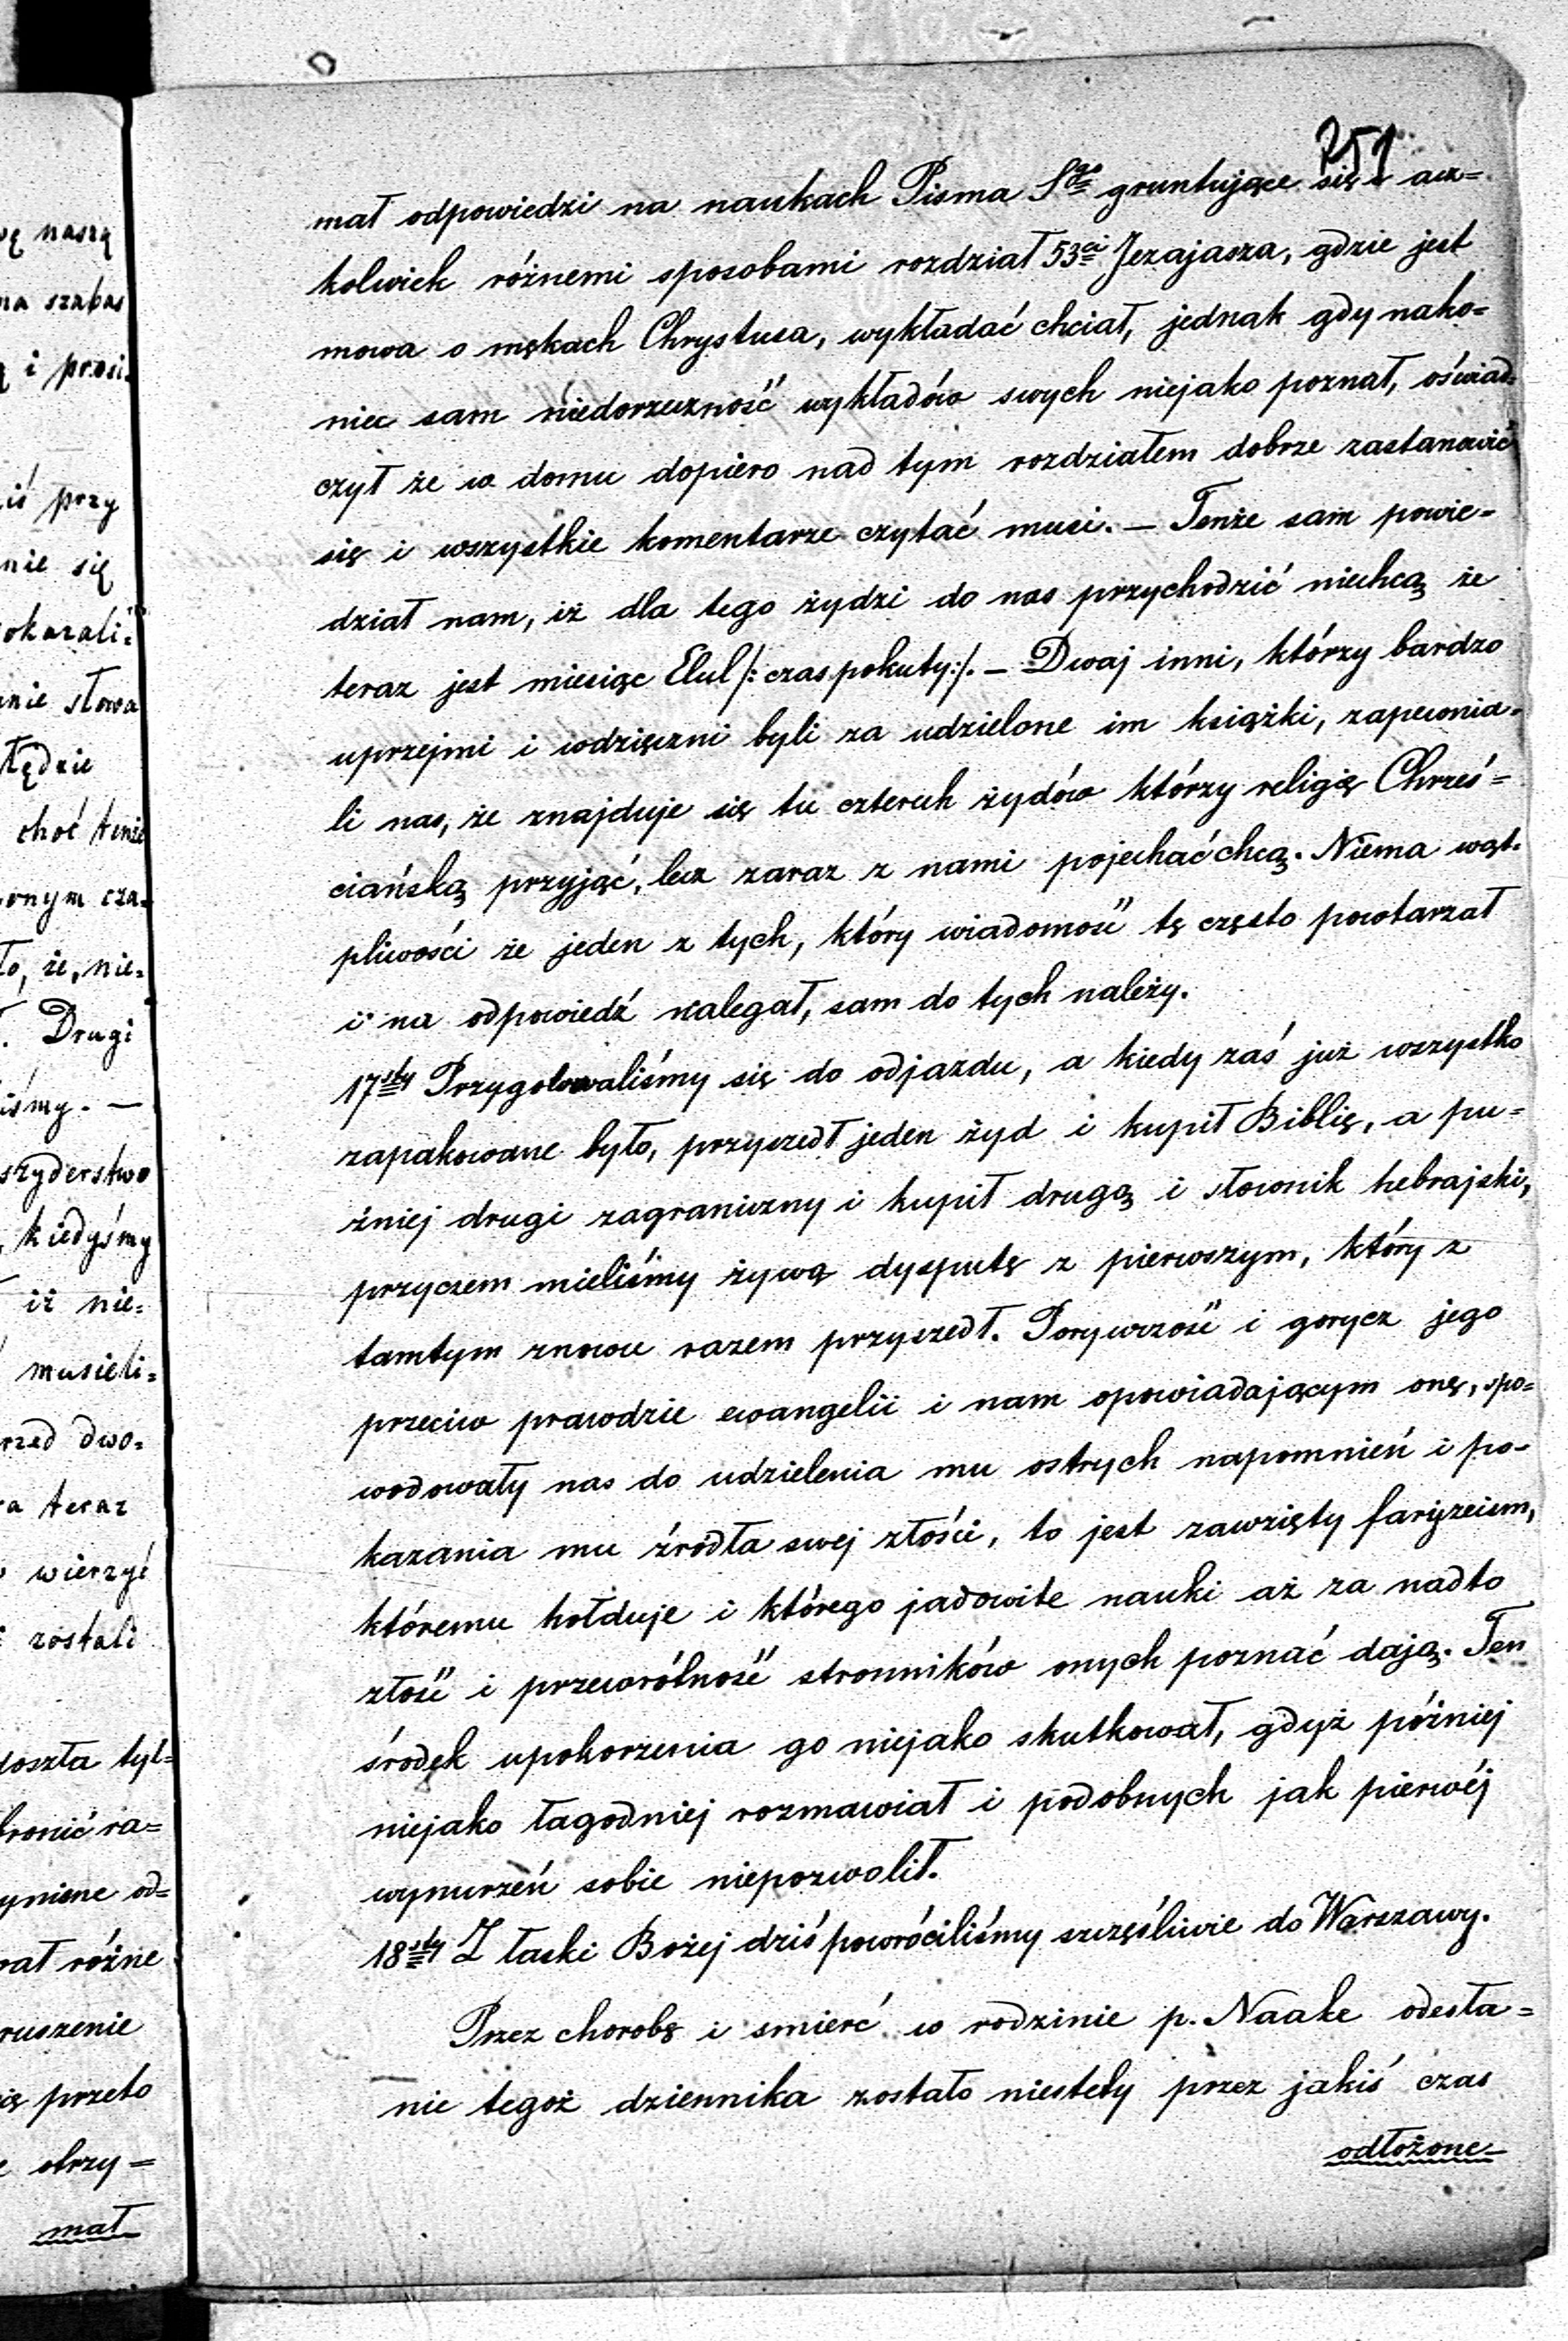 wę naszą
na szabas
ą i prosi-
iś przy
nie się
okazali-
nie słowa
błędzie
choć tenże
onym cza-
to, że, nie-
. Drugi
iśmy. —
szyderstwo
, kiedyśmy
iż nie-
musieli-
rzed dwo-
ra teraz
wierzyć
i zostali
doszła tyl-
bronić za-
ynione od-
rał różne
ruszenie
ię przeto
e otrzy=
mał
251
mał odpowiedzi na naukach Pisma Sgo gruntujące się i acz=
kolwiek różnemi sposobami rozdział 53ci Jezajasza, gdzie jest
mowa o mękach Chrystusa, wykładać chciał, jednak gdy nako=
niec sam niedorzeczność wykładów swych niejako poznał, oświad-
czył że w domu dopiero nad tym rozdziałem dobrze zastanowić
się i wszystkie komentarze czytać musi. — Tenże sam powie-
dział nam, iż dla tego żydzi do nas przychodzić niechcą że
teraz jest miesiąc Elul /: czas pokuty :/. — Dwaj inni, którzy bardzo
uprzejmi i wdzięczni byli za udzielone im książki, zapewnia-
li nas, że znajduje się tu czterech żydów którzy religię Chrześ=
ciańską przyjąć, lecz zaraz z nami pojechać chcą. Niema wąt-
pliwości że jeden z tych, który wiadomość tę często powtarzał
i na odpowiedź nalegał, sam do tych należy.
17sty Przygotowaliśmy się do odjazdu, a kiedy zaś już wszystko
zapakowane było, przyszedł jeden żyd i kupił Biblię, a pu=
źniej drugi zagraniczny i kupił drugą i słownik hebrajski,
przyczem mieliśmy żywą dysputę z pierwszym, który z
tamtym znowu razem przyszedł. Porywczość i gorycz jego
przeciw prawdzie ewangelii i nam opowiadającym onę, spo=
wodowały nas do udzielenia mu ostrych napomnień i po-
kazania mu źródła swej złości, to jest zawzięty faryzeism,
któremu hołduje i którego jadowite nauki aż za nadto
złość i przewrótność stronników onych poznać dają. Ten
środek upokorzenia go niejako skutkował, gdyż później
niejako łagodniej rozmawiał i podobnych jak pierwéj
wynurzeń sobie niepozwolił.
18sty Z łaski Bożej dziś powróciliśmy szczęśliwie do Warszawy.
Przez chorobę i smierć w rodzinie p. Naake odesła=
nie tegoż dziennika zostało niestety przez jakiś czas
odłożone